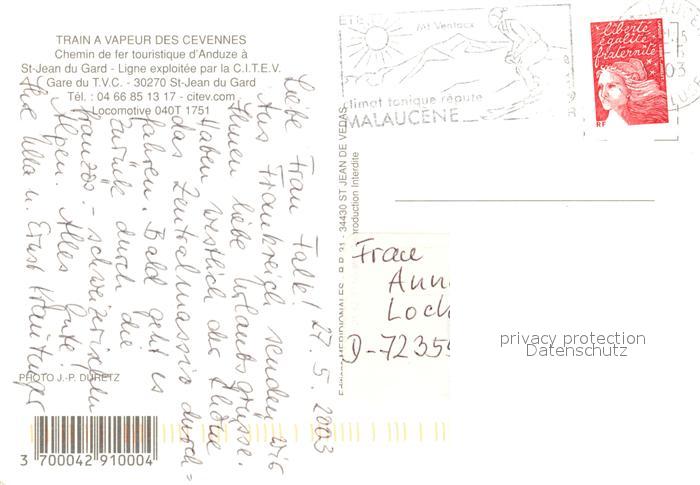 TRAIN A VAPEUR DES CEVENNES
Chemin de fer touristique d'Anduze à
St-Jean du Gard - Ligne exploitée par la C.I.T.E.V.
Gare du T.V.C. - 30270 St-Jean du Gard
Tél. : 04 66 85 13 17 - citev.com
Locomotive 040T 1751
27.5.2003
Liebe Frau Falk!
Aus Frankreich senden wir
Ihnen liebe Urlaubsgrüsse.
Haben westlich der Rhône
das Zentralmassiv durch=
fahren. Bald geht es
zurück durch die
französ.-schweizerischen
Alpen. Alles Gute!
Ihre Ulla u. Ernst
PHOTO J.-P. DURETZ
3 700042 910004
34430 ST JEAN DE VEDAS
production Interdite
ETE
Mt Ventoux
climat tonique réputé
MALAUCENE
liberté
égalité
fraternité
RF
03
Frau
Ann
Loch
D-7235
privacy protection
Datenschutz